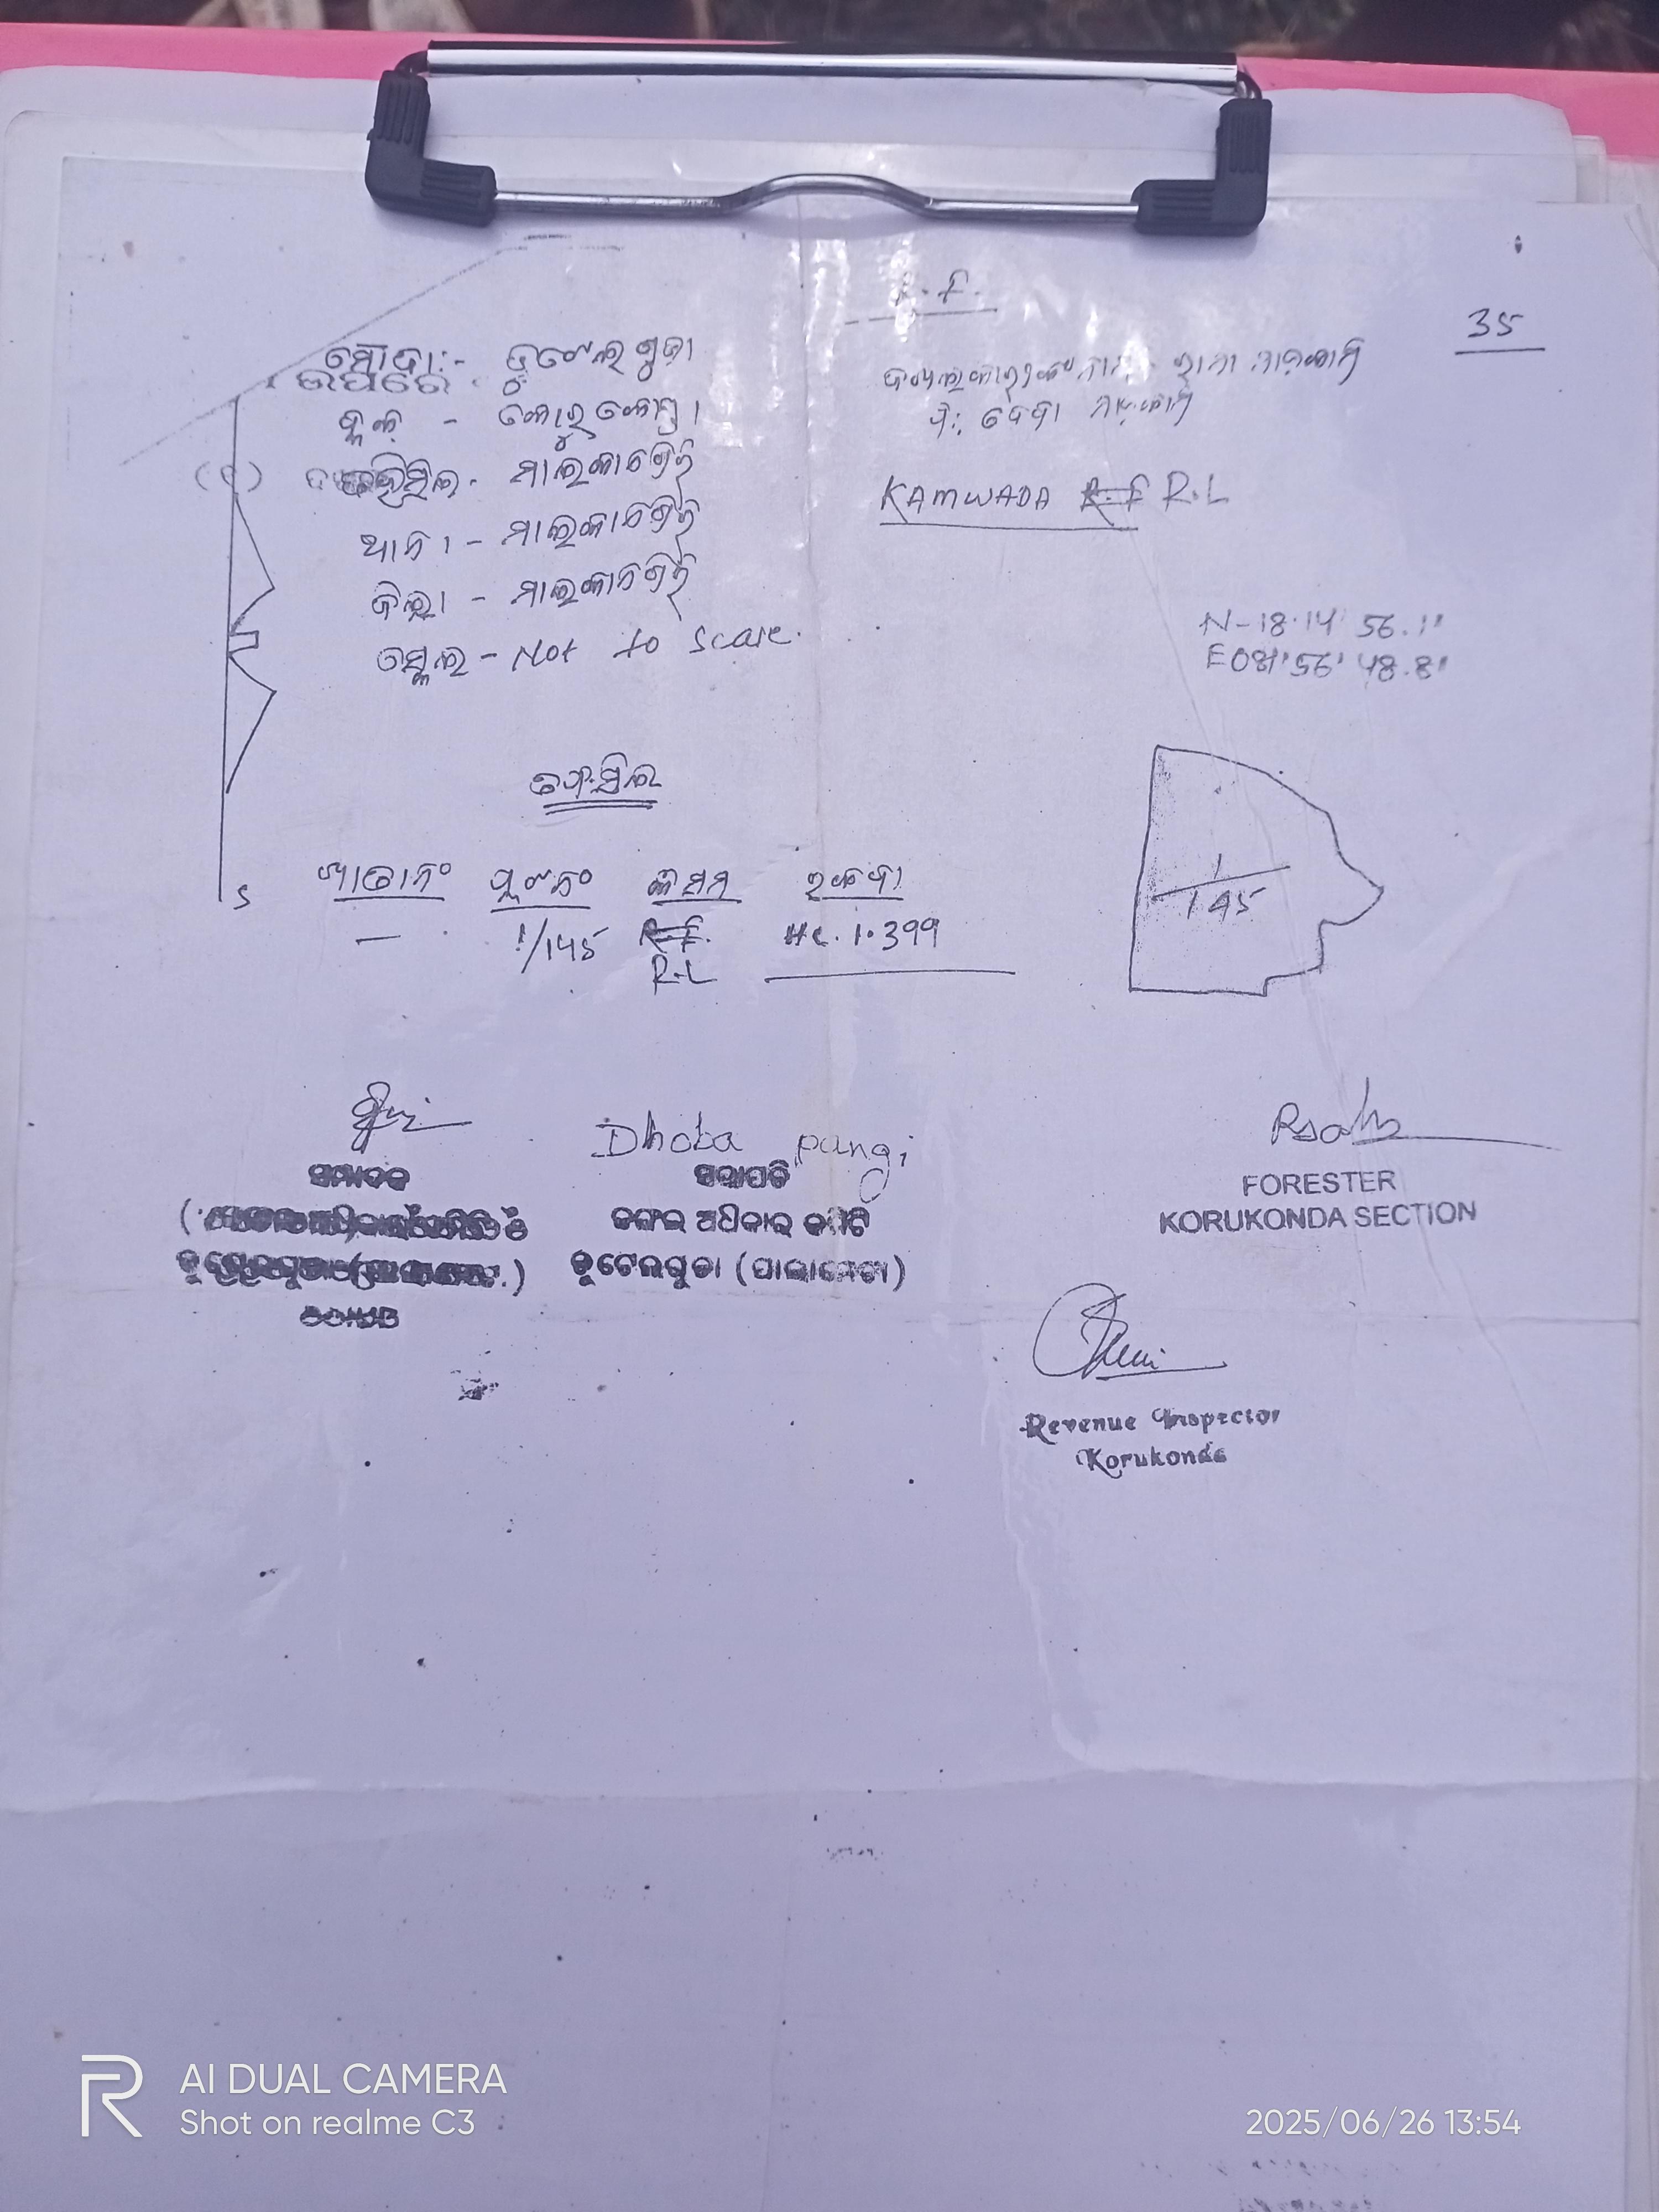 R.F.
35
ମୌଜା:- ଡୁଟେଲଗୁଡା
ଉପରେ
ବ୍ଲକ - କୋରୁକୋଣ୍ଡା
ତହସିଲ - ମାଲକାନଗିରି
ଥାନା - ମାଲକାନଗିରି
ଜିଲ୍ଲା - ମାଲକାନଗିରି
ସ୍କେଲ - Not to Scale.
ଦଖଲକାରୀଙ୍କ ନାମ -
ପି:
KAMWADA R.F R.L
N-18.14' 56.1"
E081'56' 48.8"
ତଫସିଲ
ଖାତା ନଂ ପ୍ଲଟ ନଂ କିସମ ରକବା
— 1/145 R.F. Hc. 1.399
R.L
1
145
S
Dhoba pangi
ସମ୍ପାଦକ
ସଭାପତି
ଜଙ୍ଗଲ ଅଧିକାର କମିଟି
ଡୁଟେଲଗୁଡା (ପାଲାମେଟା)
FORESTER
KORUKONDA SECTION
Revenue Inspector
Korukonda
AI DUAL CAMERA
Shot on realme C3
2025/06/26 13:54